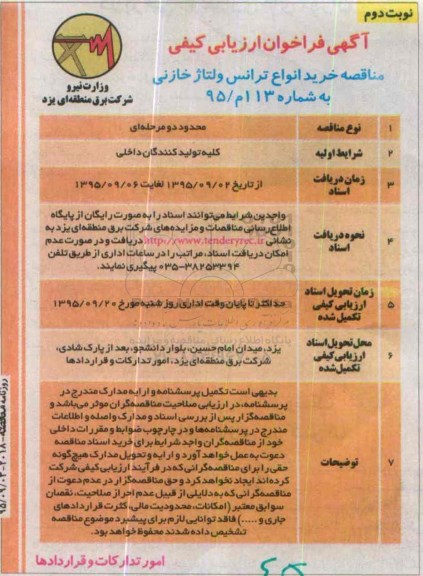 نوبت دوم
آگهی فراخوان ارزیابی کیفی
مناقصه خرید انواع ترانس ولتاژ خازنی
به شماره ۱۱۳م/۹۵
وزارت نیرو
شرکت برق منطقه‌ای یزد
۱ نوع مناقصه محدود دو مرحله‌ای
۲ شرایط اولیه کلیه تولید کنندگان داخلی
۳ زمان دریافت اسناد از تاریخ ۱۳۹۵/۰۹/۰۲ لغایت ۱۳۹۵/۰۹/۰۶
۴ نحوه دریافت اسناد
واجدین شرایط می‌توانند اسناد را به صورت رایگان از پایگاه
اطلاع‌رسانی مناقصات و مزایده‌های شرکت برق منطقه‌ای یزد به
نشانی http://www.tenderyrec.ir دریافت و در صورت عدم
امکان دریافت اسناد، مراتب را در ساعات اداری از طریق تلفن
۰۳۵-۳۸۲۵۳۳۹۴ پیگیری نمایند.
۵ زمان تحویل اسناد
ارزیابی کیفی
تکمیل شده
حداکثر تا پایان وقت اداری روز شنبه مورخ ۱۳۹۵/۰۹/۲۰
۶ محل تحویل اسناد
ارزیابی کیفی
تکمیل شده
یزد، میدان امام حسین، بلوار دانشجو، بعد از پارک شادی،
شرکت برق منطقه‌ای یزد، امور تدارکات و قراردادها
۷ توضیحات
بدیهی است تکمیل پرسشنامه و ارایه مدارک مندرج در
پرسشنامه، در ارزیابی صلاحیت مناقصه‌گران موثر می‌باشد و
مناقصه‌گزار پس از بررسی اسناد و مدارک واصله و اطلاعات
مندرج در پرسشنامه‌ها و در چارچوب ضوابط و مقررات داخلی
خود از مناقصه‌گران واجد شرایط برای خرید اسناد مناقصه
دعوت به عمل خواهد آورد و ارایه و تحویل مدارک هیچ‌گونه
حقی را برای مناقصه‌گرانی که در فرآیند ارزیابی کیفی شرکت
کرده‌اند ایجاد نخواهد کرد و حق مناقصه‌گزار در عدم دعوت از
مناقصه‌گرانی که به دلایلی از قبیل عدم احراز صلاحیت، نقصان
سوابق معتبر (امکانات، محدودیت مالی، کثرت قراردادهای
جاری و .....) فاقد توانایی لازم برای پیشبرد موضوع مناقصه
تشخیص داده شدند محفوظ خواهد بود.
امور تدارکات و قراردادها